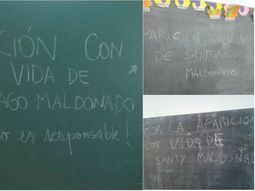 CIÓN CON
VIDA DE
AGO MALDONADO
o es responsable!
PARICION CON VI
DE SANTIAGO
MALDONADO
POR LA APARICION
CON VIDA DE
SANTY MALDONAD